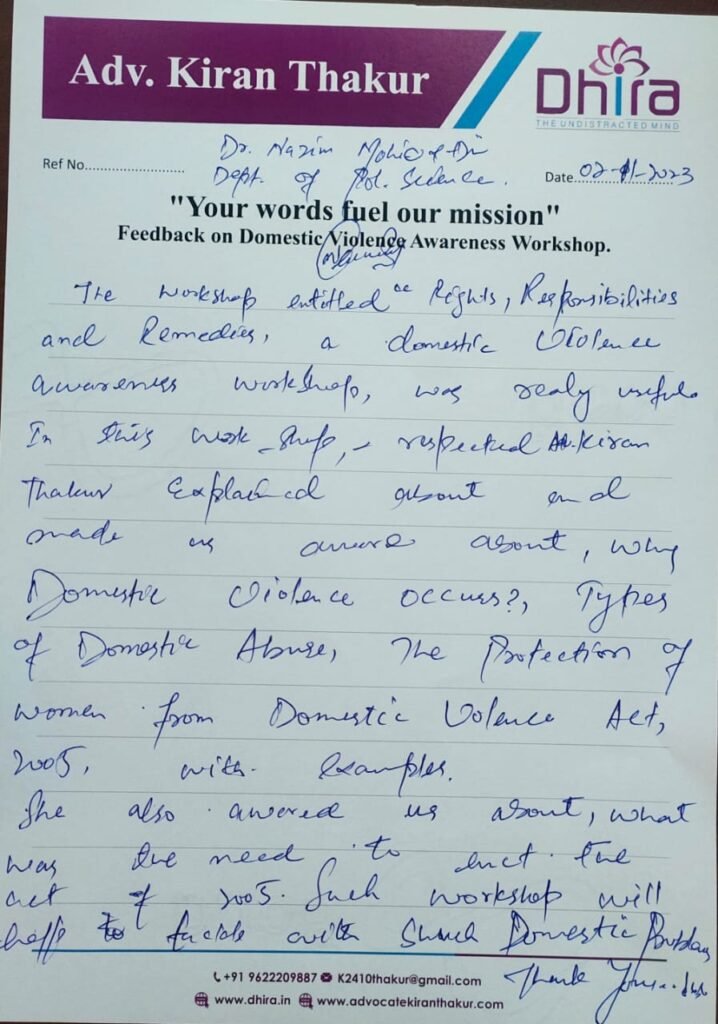 Adv. Kiran Thakur
Dhira
THE UNDISTRACTED MIND
Dr. Nazim Mohi
Ref No.......................... Dept. of Pol. Science. Date 02-11-2023
"Your words fuel our mission"
Feedback on Domestic Violence Awareness Workshop.
The workshop entitled " Rights, Responsibilities
and Remedies, a domestic Violence
awareness workshop, was realy useful.
In this work-shop, - respected Kiran
Thakur Explained about and
made us aware about, why
Domestic Violence occurs?, Types
of Domestic Abuse, The Protection of
women from Domestic Volence Act,
2005, with examples.
She also awared us about, what
was the need to enct the
act of 2005. Such workshop will
to with Domestic
Thank You
+91 9622209887 K2410thakur@gmail.com
www.dhira.in www.advocatekiranthakur.com